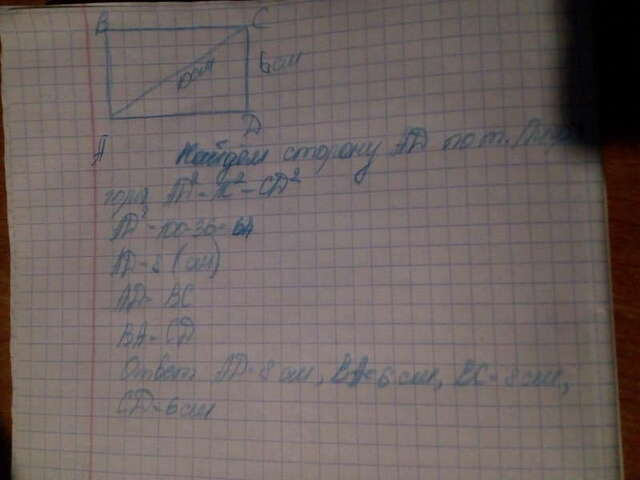 B C
10 см 6 см
A D
Найдем сторону AD по т. Пифа
гора AD² = AC² - CD²
AD² = 100-36=64
AD=8 (см)
AD= BC
BA=CD
Ответ AD=8 см, BA=6 см, BC=8 см,
CD=6 см